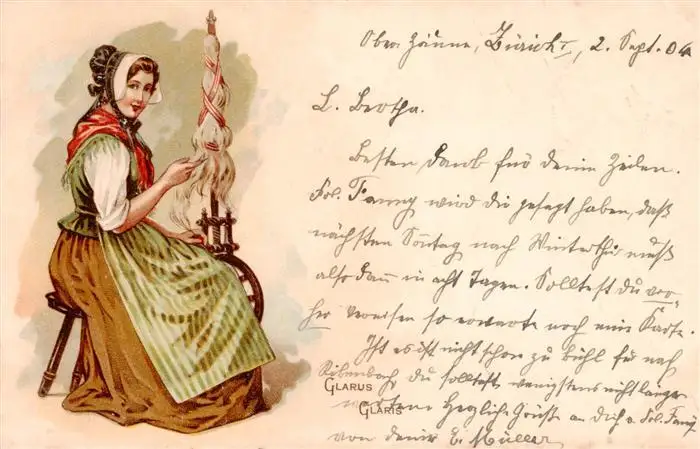 Ober Zäune, Zürich I, 2. Sept. 04
L. Bertha.
Besten Dank für deine Zeilen.
Frl. Fanny wird dir gesagt haben, daß
nächsten Sonntag nach Winterthur muß
also dann in acht Tagen. Solltest Du vor-
her verreisen so erwarte noch eine Karte.
Ist es ist nicht schon zu kühl für nach
du solltest wenigstens nicht länger
GLARUS
warten Herzliche Grüße an Dich u. Frl. Fanny
GLARIS
von deiner E. Müller